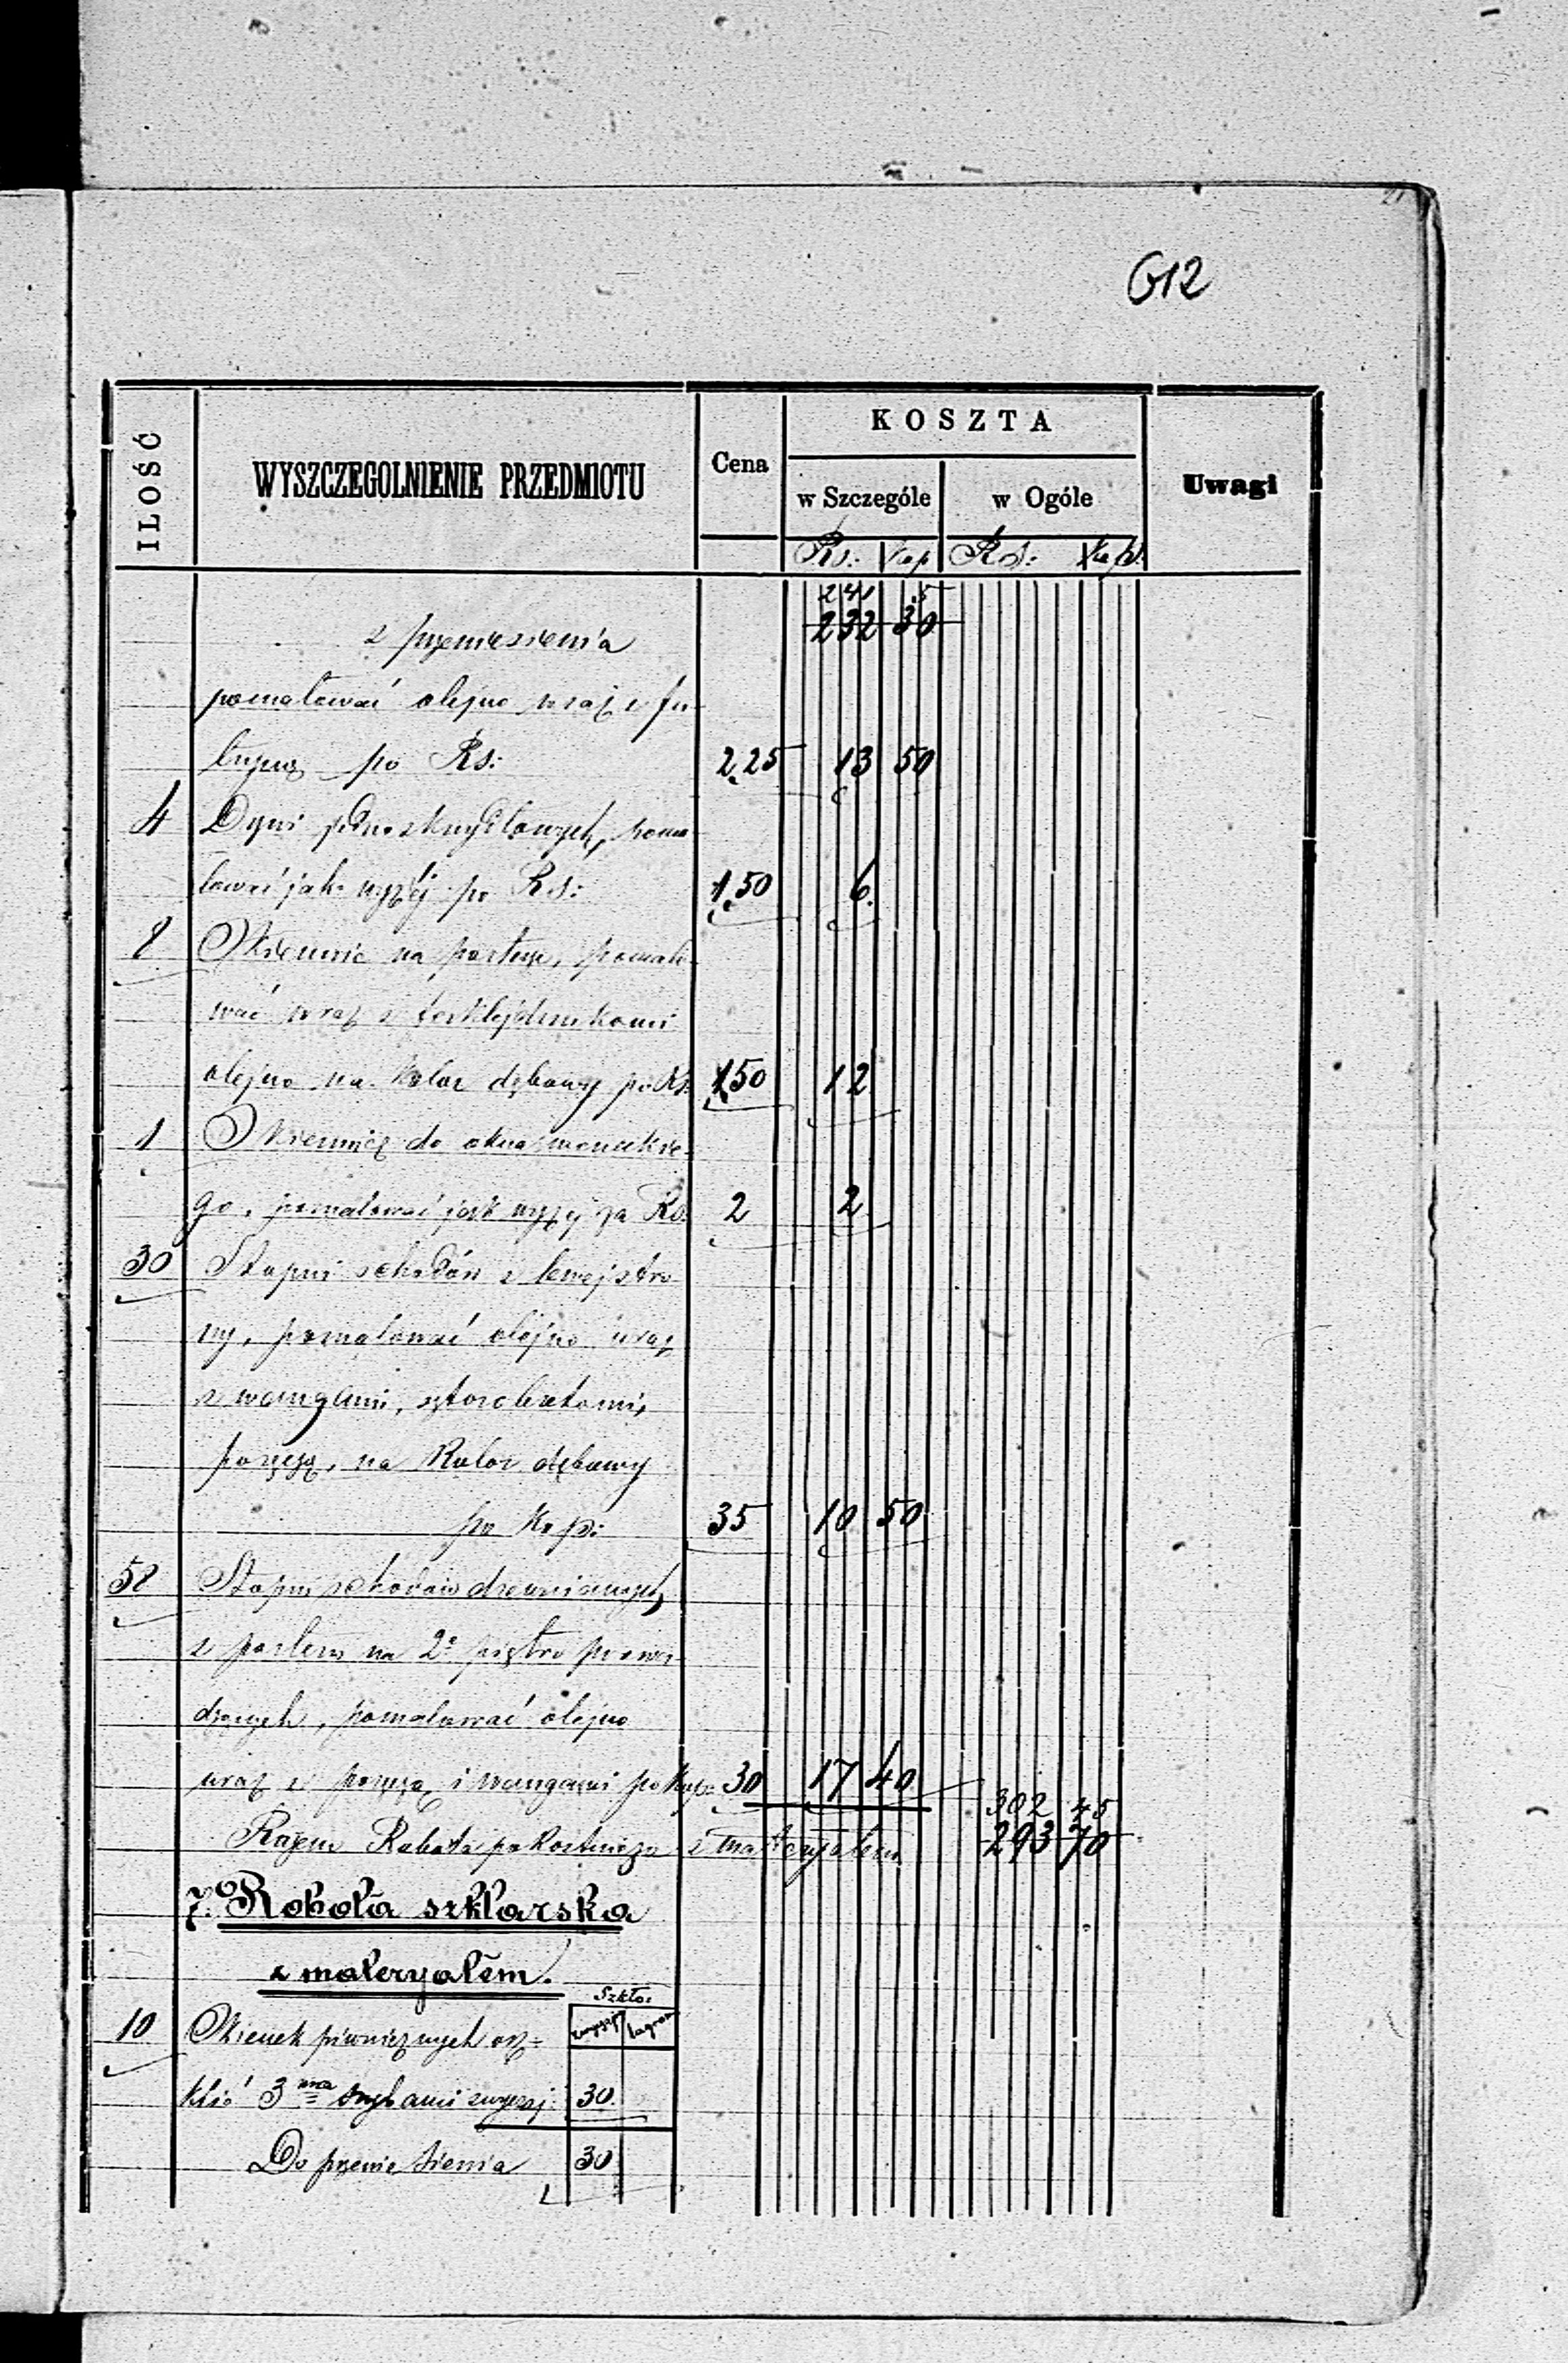 612
KOSZTA
ILOŚĆ WYSZCZEGOLNIENIE PRZEDMIOTU Cena w Szczególe w Ogóle Uwagi
Rs: Kop Rs: Kop:
241 5
z przeniesienia 232 30
pomalować olejno wraz z fu-
tryną po Rs: 2,25 13 50
4 Drzwi jednoskrzydłowych, poma-
lować jak wyżej po Rs: 1,50 6.
8 Okiennic na parterze, pomalo-
wać wraz z
olejno na kolor dębowy po Rs. 1,50 12
1 Okiennicę do okna
go, pomalować jak wyżej za Rs. 2 2
30 Stopni schodów z lewej stro-
ny, pomalować olejno wraz
z wangami, sztorcbretami,
poręczą, na kolor dębowy
po Kop: 35 10 50
58 Stopni schodów drewnianych,
z parteru na 2e piętro prowa-
dzących, pomalować olejno
wraz z poręczą i wangami po Kop. 30 17 40
302 45
Razem Robota pokostnicza z materyałem 293 70
7o. Robota szklarska
z materyałem.
Szkło:
10 Okienek piwnicznych osz-
klić 3ma szybami zwyczaj. 30.
Do przeniesienia 30